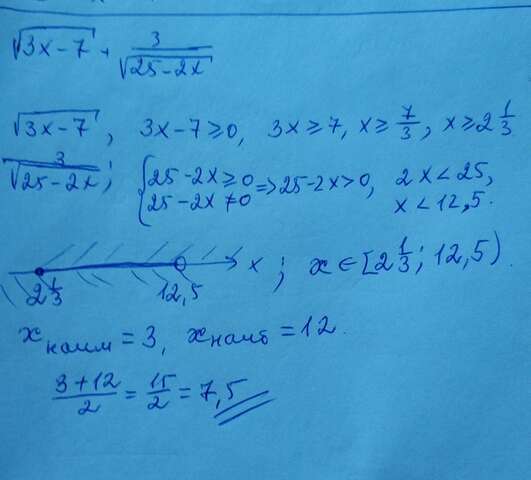 √(3x-7) + 3/√(25-2x)
√(3x-7); 3x-7≥0, 3x≥7, x≥7/3, x≥2 1/3
3/√(25-2x); {25-2x≥0 25-2x≠0 => 25-2x>0, 2x<25,
x<12,5.
x; x∈[2 1/3; 12,5)
2 1/3 12,5
x наим = 3, x наиб = 12.
(3+12)/2 = 15/2 = 7,5